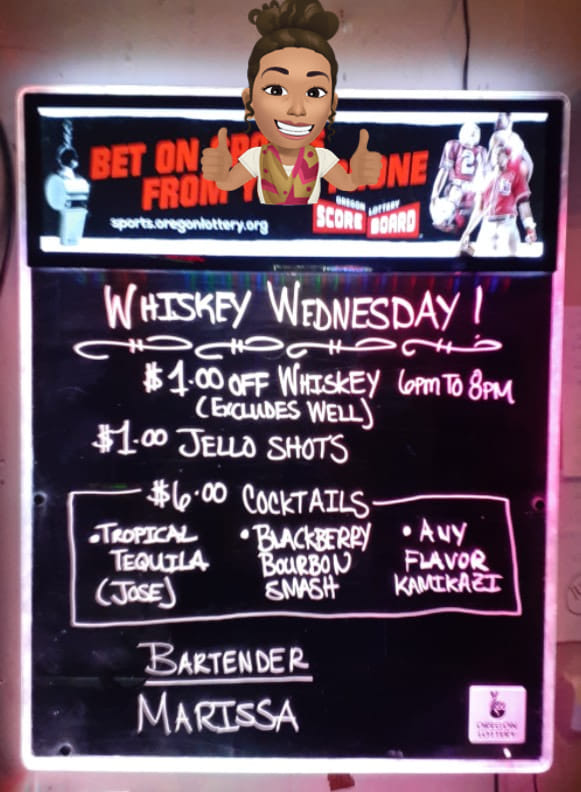 BET ON
FROM ONE
sports.oregonlottery.org
OREGON LOTTERY
SCORE BOARD
WHISKEY WEDNESDAY!
$1.00 OFF WHISKEY 6PM TO 8PM
(EXCLUDES WELL)
$1.00 JELLO SHOTS
$6.00 COCKTAILS
• TROPICAL
TEQUILA
(JOSE)
• BLACKBERRY
BOURBON
SMASH
• ANY
FLAVOR
KAMIKAZI
BARTENDER
MARISSA
OREGON
LOTTERY